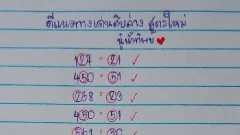 ตีแนวทางเด่นสิบล่าง สูตรใหม่
นู๋น้ำทิพย์ ❤
127 = 21 ✓
450 = 51 ✓
238 = 23 ✓
450 = 51 ✓